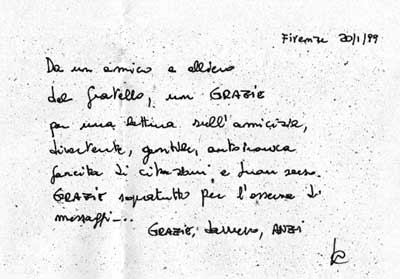 Firenze 20/1/99
Da un amico e allievo
del fratello, un GRAZIE
per una lettura sull'amicizia,
divertente, gentile, autoironica
farcita di citazioni e buon senso.
GRAZIE sopratutto per l'assenza di
messaggi....
GRAZIE, davvero, ANZI